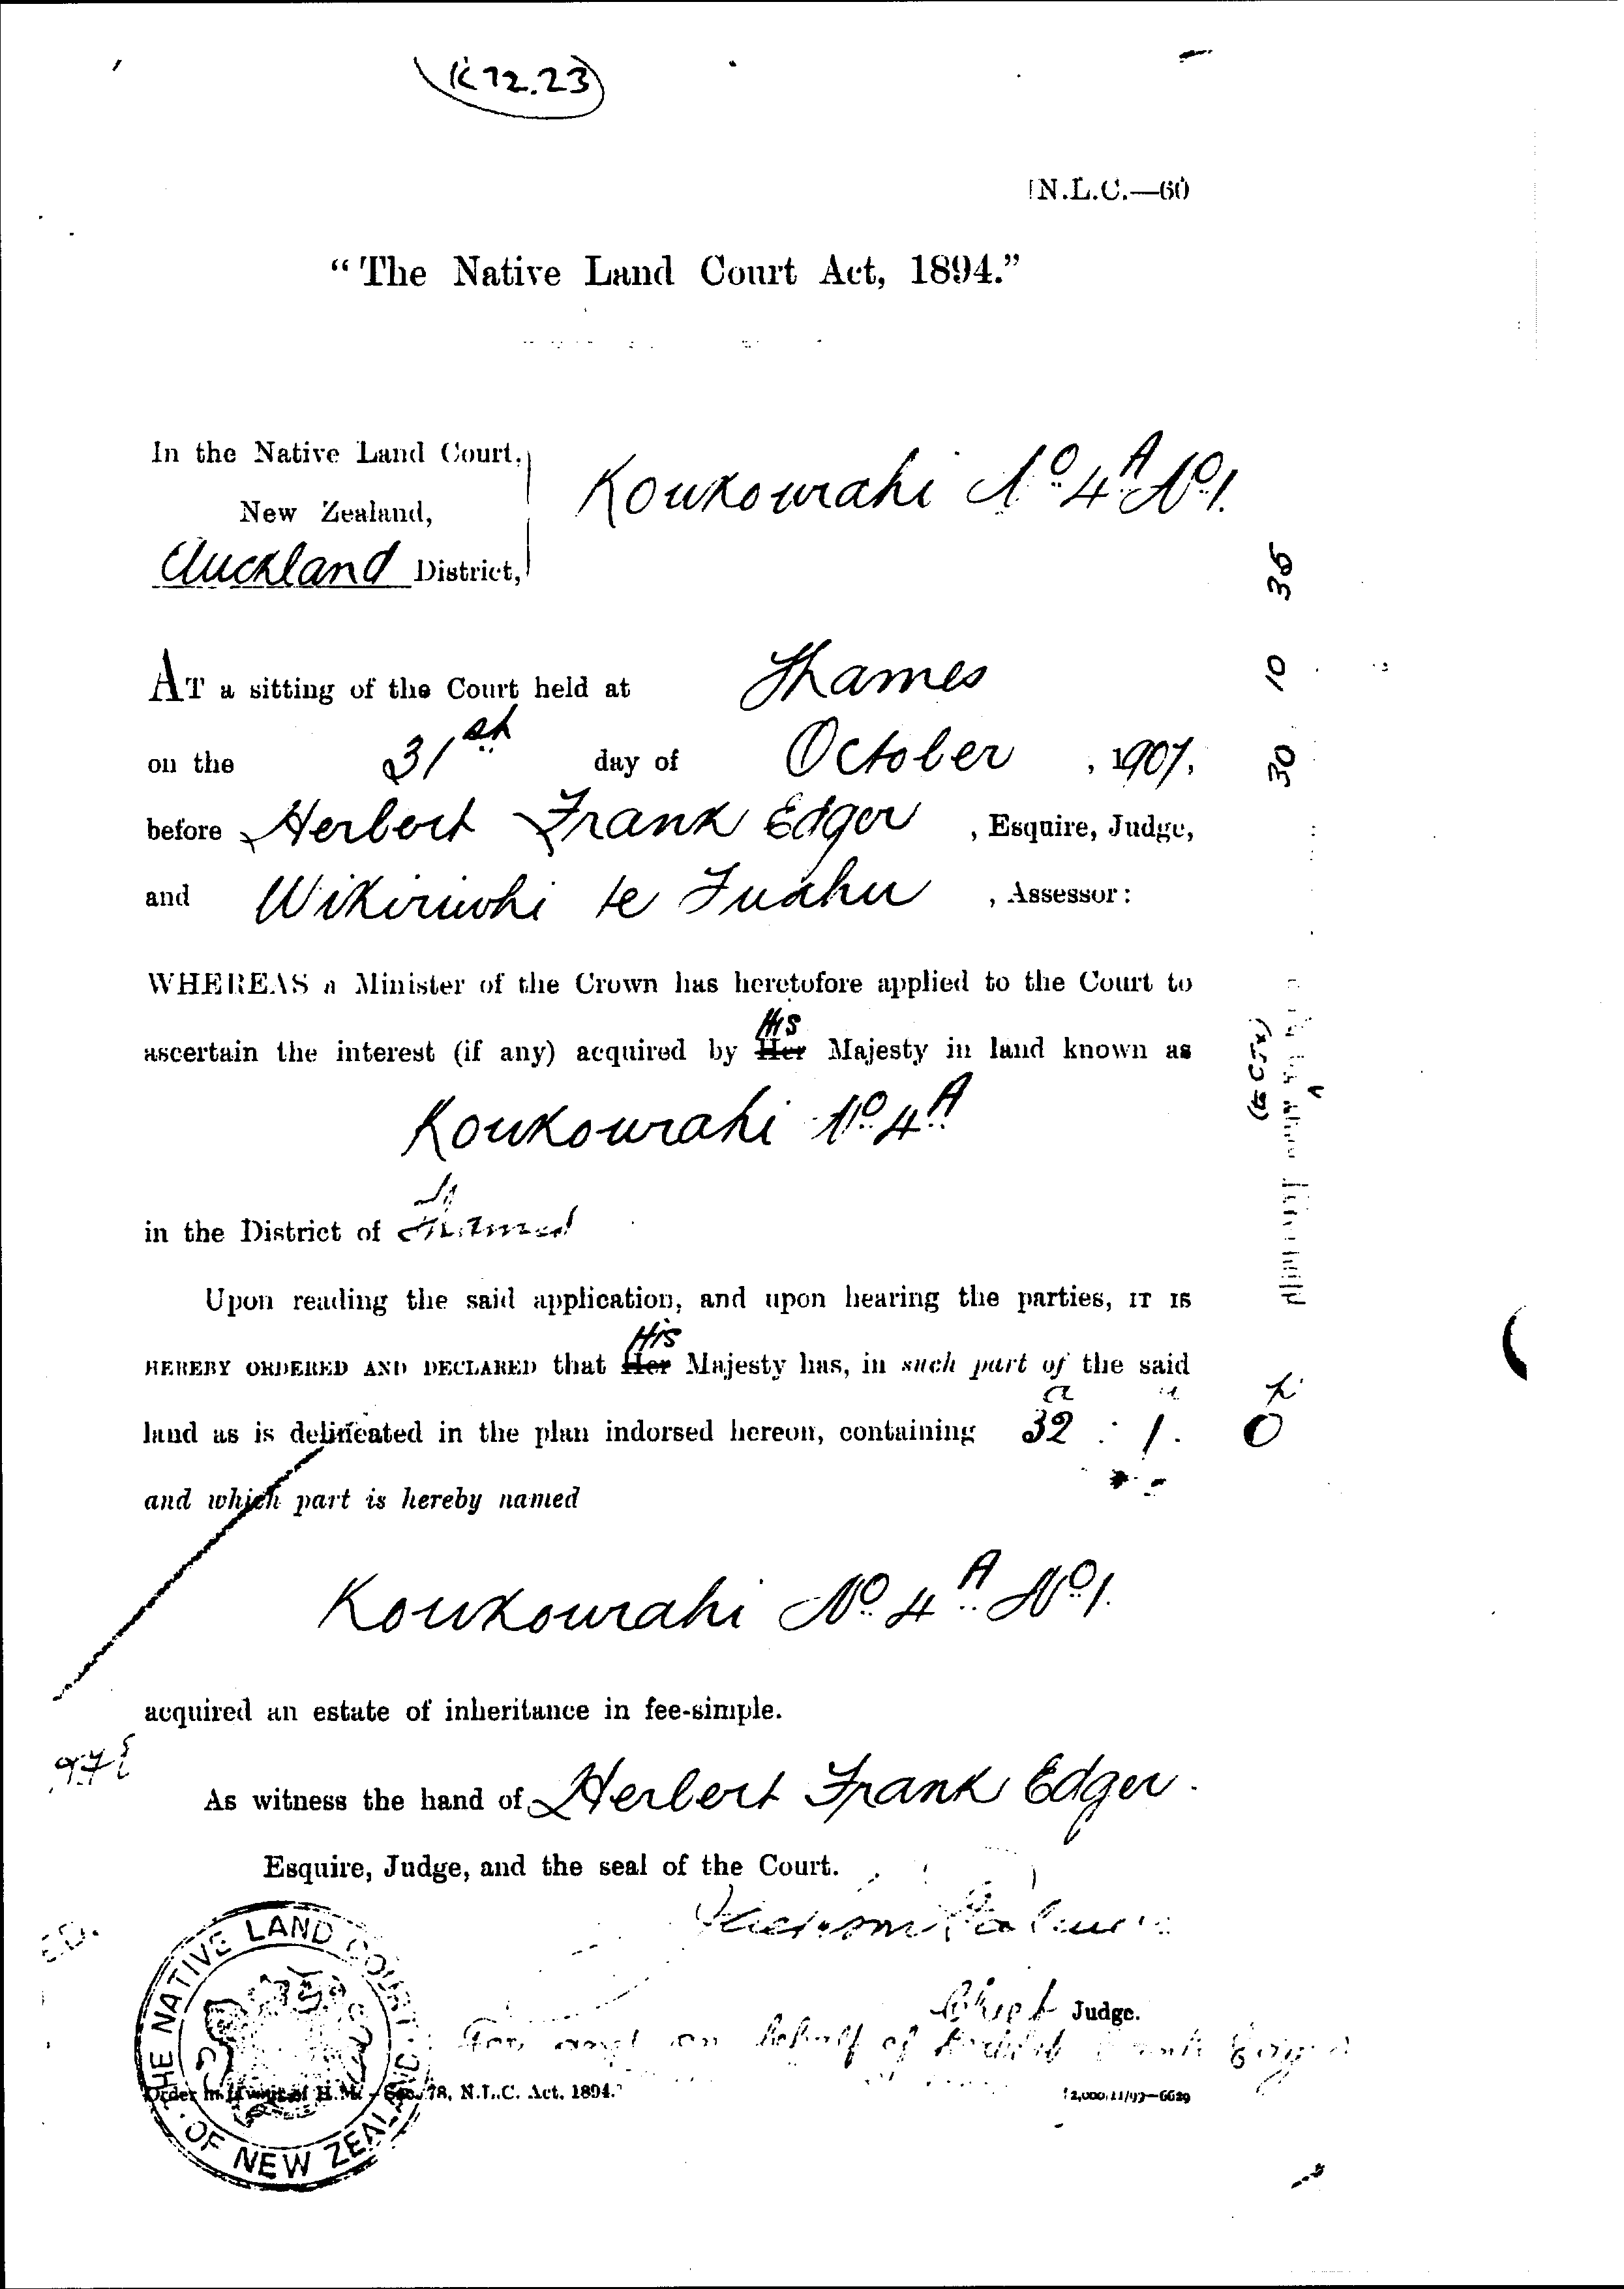 K12.23
N.L.C.—60
"The Native Land Court Act, 1894."
In the Native Land Court,
New Zealand,
Auckland District,
Koukourahi No 4A No 1.
AT a sitting of the Court held at Thames
on the 31st day of October, 1907,
before Herbert Frank Edger, Esquire, Judge,
and Wikiriwhi te Tuahu, Assessor:
WHEREAS a Minister of the Crown has heretofore applied to the Court to
His
ascertain the interest (if any) acquired by Her Majesty in land known as
Koukourahi No 4A
in the District of Thames
Upon reading the said application, and upon hearing the parties, IT IS
His
HEREBY ORDERED AND DECLARED that Her Majesty has, in such part of the said
a p
land as is delineated in the plan indorsed hereon, containing 32 : 1. 0
and which part is hereby named
Koukourahi No 4A No 1.
acquired an estate of inheritance in fee-simple.
As witness the hand of Herbert Frank Edger.
Esquire, Judge, and the seal of the Court.
Jackson Palmer
Chief Judge.
For and on behalf of Herbert Frank Edger
Order in favour of H.M.—Sec. 78, N.L.C. Act, 1894.
THE NATIVE LAND COURT OF NEW ZEALAND
30 10 35